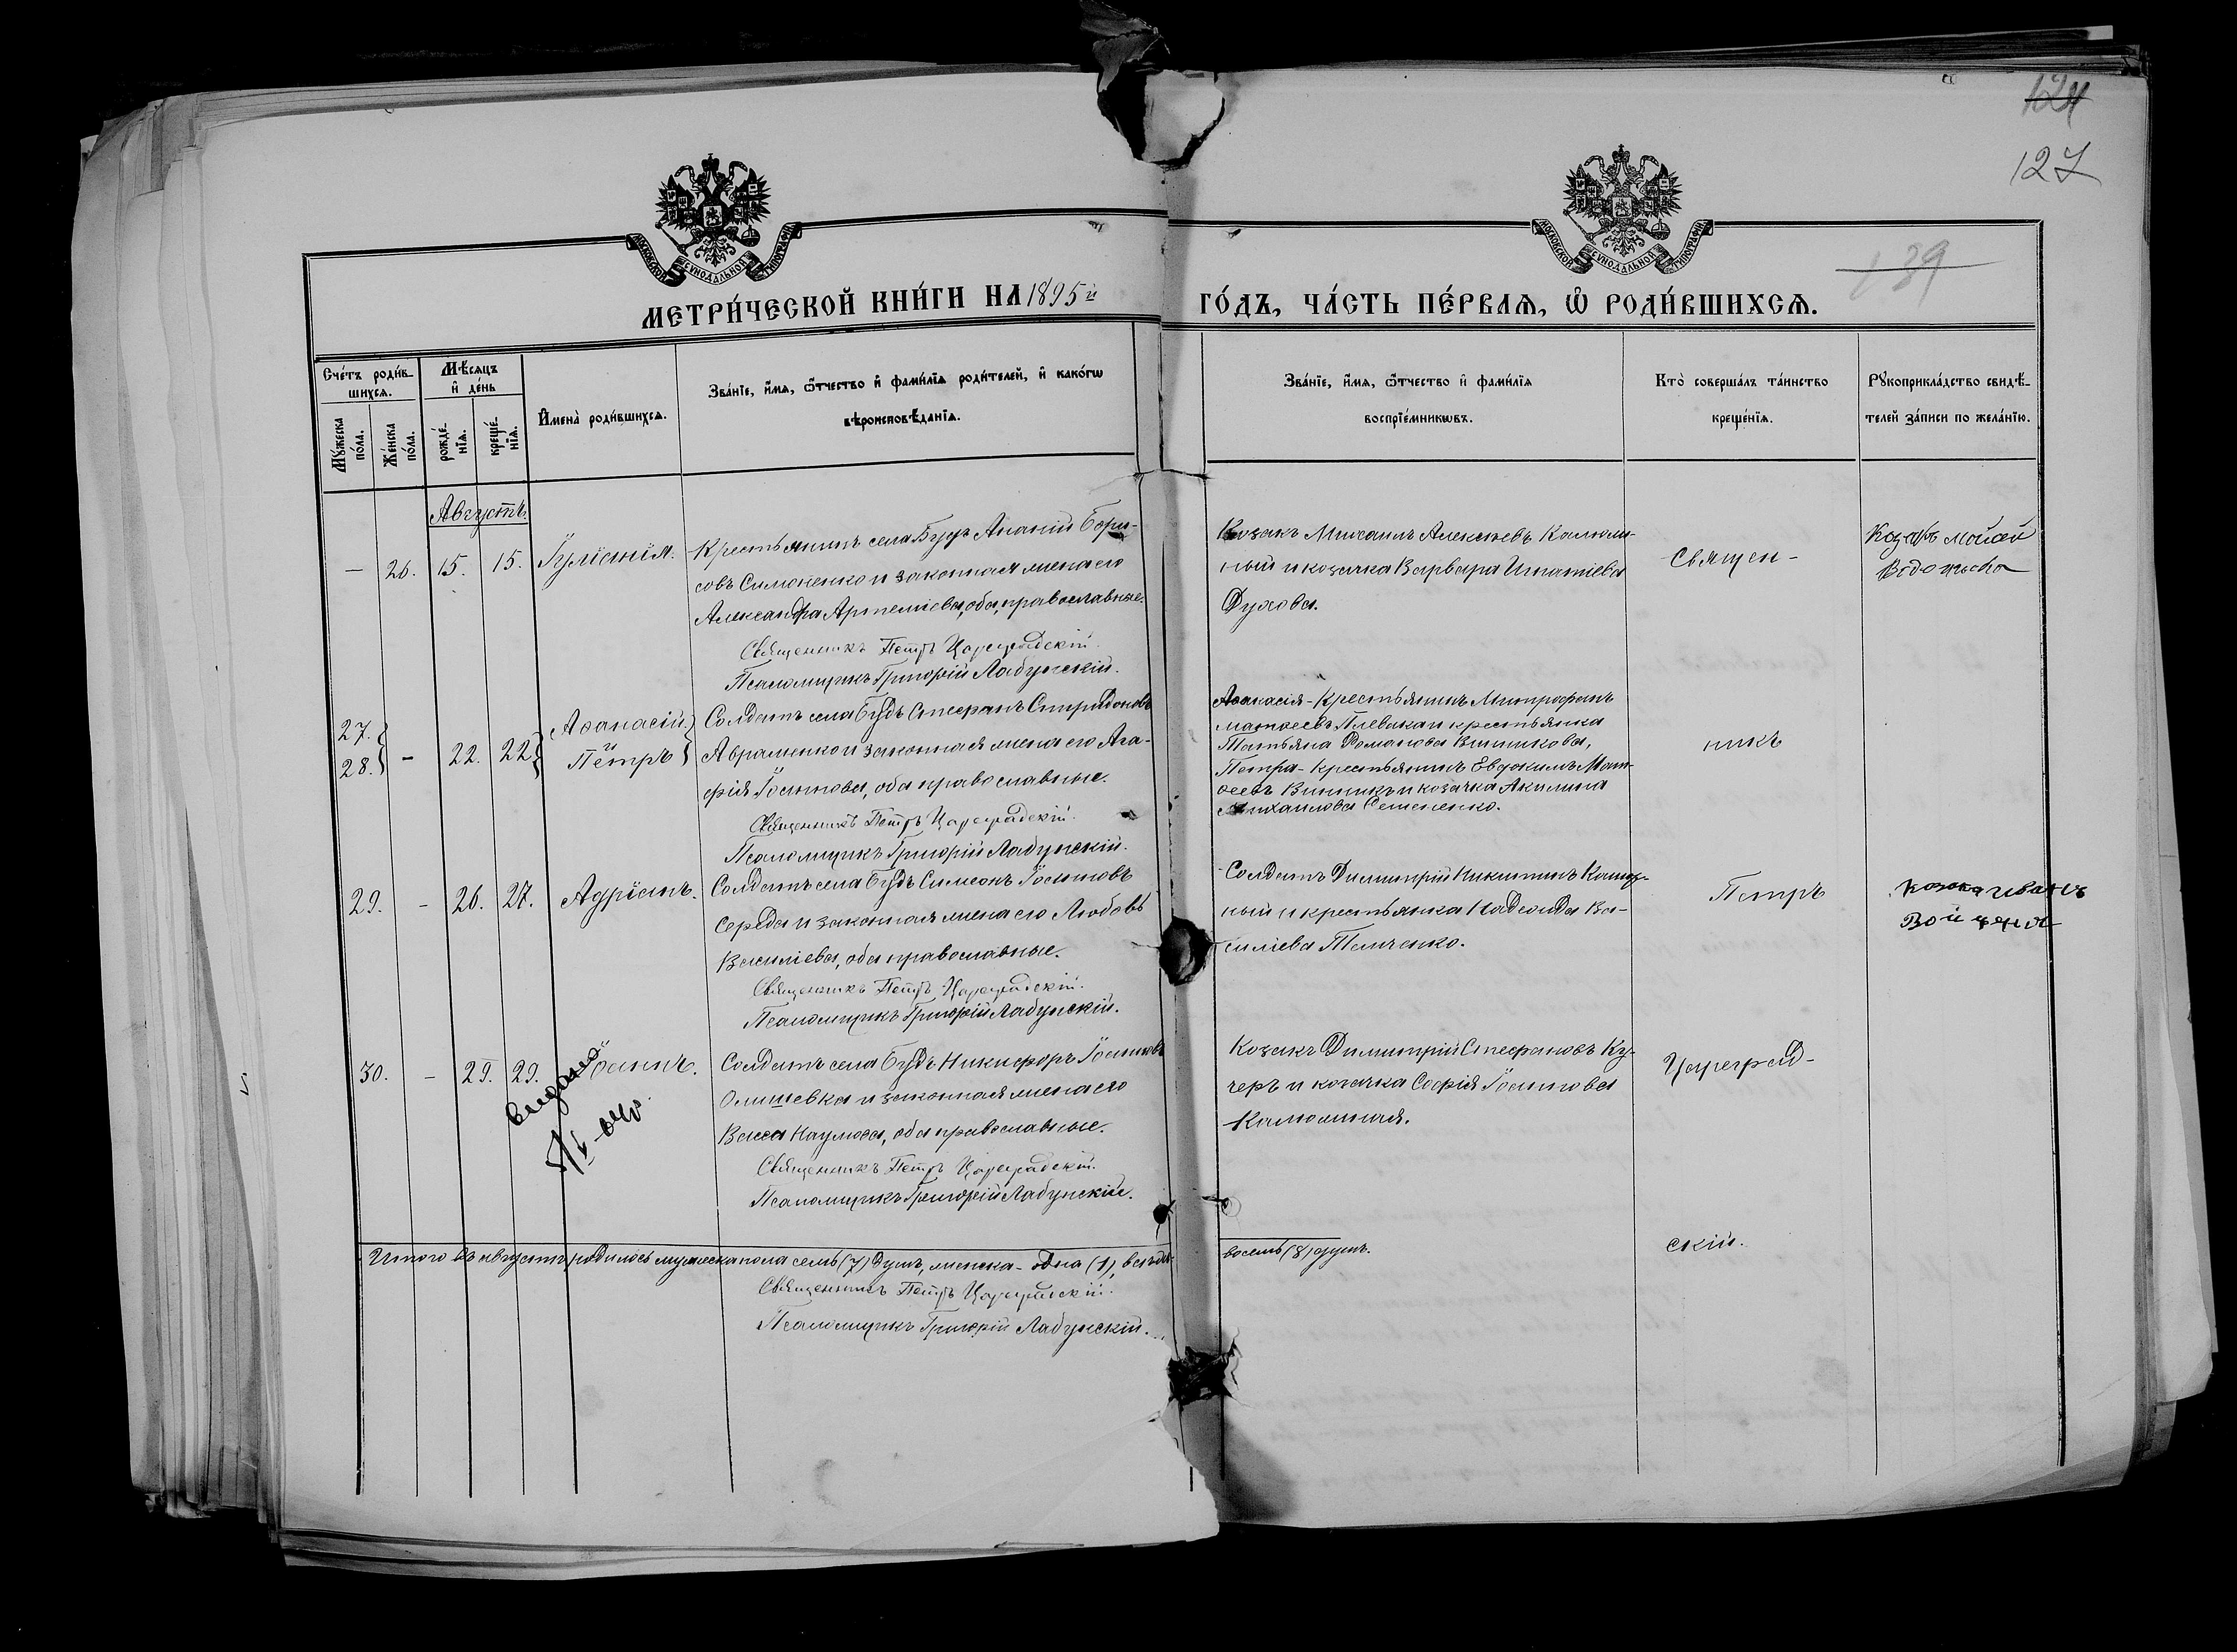 124
127
139
МОСКОВСКОЙ СѴНОДАЛЬНОЙ ТИПОГРАФІИ
МОСКОВСКОЙ СѴНОДАЛЬНОЙ ТИПОГРАФІИ
МЕТРИ́ЧЕСКОЙ КНИ́ГИ НА 1895й
ГО́ДЪ, ЧА́СТЬ ПЕ́РВАѦ, Ѡ҆ РОДИ́ВШИХСѦ.
Сче́тъ роди́в-
шихсѧ.
Мꙋ́жеска по́ла.
Же́нска по́ла.
Мѣ́сѧцъ
и҆ де́нь
рожде́-
нїѧ.
креще́-
нїѧ.
И҆мена̀ роди́вшихсѧ.
Зва́нїе, и҆́мѧ, ѻ҆́тчество и҆ фами́лїѧ роди́телей, и҆ како́гѡ
вѣроисповѣ́данїѧ.
Зва́нїе, и҆́мѧ, ѻ҆́тчество и҆ фами́лїѧ
воспрїе́мникѡвъ.
Кто̀ соверша́лъ та́инство
креще́нїѧ.
Рꙋкоприкла́дство свидѣ́-
телей за́писи по жела́нїю.
Августъ.
— 26. 15. 15. Іуліанія.
Крестьянинъ села Будъ Ананій Бори-
совъ Симоненко и законная жена его
Александра Артеміева, оба православные.
Священникъ Петръ Цареградскій.
Псаломщикъ Григорій Лабунскій.
Козакъ Михаилъ Алексѣевъ Калюж-
ный и козачка Варвара Игнатіева
Духова.
Священ-
Козакъ
27.
28. – 22. 22.
Аѳанасій
и
Петръ
Солдатъ села Будъ Стефанъ Спиридоновъ
Авраменко и законная жена его Ага-
фія Іоаннова, оба православные.
Священникъ Петръ Цареградскій.
Псаломщикъ Григорій Лабунскій.
Аѳанасія - крестьянинъ Митрофанъ
Матѳеевъ Плевака и крестьянка
Татьяна Романова Винникова,
Петра - крестьянинъ Евдокимъ Мат-
ѳеевъ Винникъ и козачка Акилина
Михаилова Семененко.
никъ
29. – 26. 27. Адріанъ.
Солдатъ села Будъ Симеонъ Іоанновъ
Середа и законная жена его Любовь
Василіева, оба православные.
Священникъ Петръ Цареградскій.
Псаломщикъ Григорій Лабунскій.
Солдатъ Димитрій Никитинъ Калюж-
ный и крестьянка Надежда Ва-
силіева Ткаченко.
Петръ
30. – 29. 29. Іоаннъ.
Солдатъ села Будъ Никифоръ Іоанновъ
Олишевка и законная жена его
Васса Наумова, оба православные.
Священникъ Петръ Цареградскій.
Псаломщикъ Григорій Лабунскій.
Козакъ Димитрій Стефановъ Ку-
черъ и козачка Софія Іоаннова
Калюжная.
Цареград-
Итого въ августѣ родилось мужеска пола семь (7) душъ, женска - одна (1),
восемь (8) душъ.
скій.
Священникъ Петръ Цареградскій.
Псаломщикъ Григорій Лабунскій.